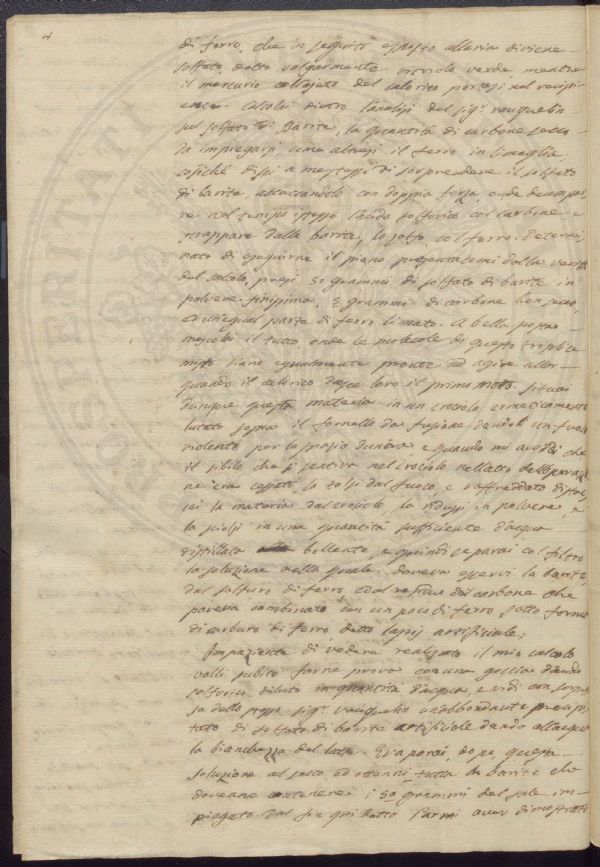 4
di ferro, che in seguito esposto all'aria diviene
solfato, detto volgarmente vitriolo verde, mentre
il mercurio coll'ajuto del calorico portasi nel recipi-
ente. Calcolai dietro l'analisi del sig.r vauquelin
sul solfato di Barite, la quantità di carbone secco
da impiegarsi, come altresì il ferro in limaglia,
cosichè dissi a me stesso di sorprendere il solfato
di barite, attaccandolo con doppia forza, onde decompor-
re nel tempo stesso l'acido solforico col carbone, e
strappare dalla barite, lo zolfo, col ferro. Determi-
nato di eseguirne il piano presentatomi dalla verità
del calcolo, presi 50 grammi di solfato di barite in
polvere finissima, 5 grammi di carbone ben secco,
ed un'egual parte di ferro limato. A bella posta
mescolai il tutto, onde le molecole di questo triplice
misto siano egualmente pronte ad agire allor-
quando il calorico dasse loro il primo moto. Situai
dunque questa materia in un crociolo ermeticamente
lutato sopra il fornello da fusione dandoli un fuoco
violento per lo spazio d'un'ora, e quando mi avvidi che
il sibilo che si sentiva nel crociolo nell'atto dell'operazio
ne era cessato, lo tolsi dal fuoco, e raffreddato distac-
cai la materia dal crociolo, la ridussi in polvere, e
la sciolsi in una quantità sufficiente d'acqua
distillata bollente, e quindi separai col filtro
la soluzione nella quale doveva esservi la barite,
dal solfuro di ferro, e dal residuo del carbone che
pareva combinato con un poco di ferro sotto forma
di carburo di ferro, detto lapis artificiale.
Impaziente di vedere realizato il mio calcolo
volli subito farne prova con una goccia d'acido
solforico diluto in quantità d'acqua, e vidi con sorpre
sa dello stesso sig.r vauquelin un'abbondante precipi-
tato di solfato di barite artificiale dando all'acqua
la bianchezza del latte. Evaporai, dopo, questa
soluzione al secco, ed ottenni tutta la barite che
doveano contenere i 50 grammi del sale im-
piegato. Dal fin qui detto parmi aver dimostrato